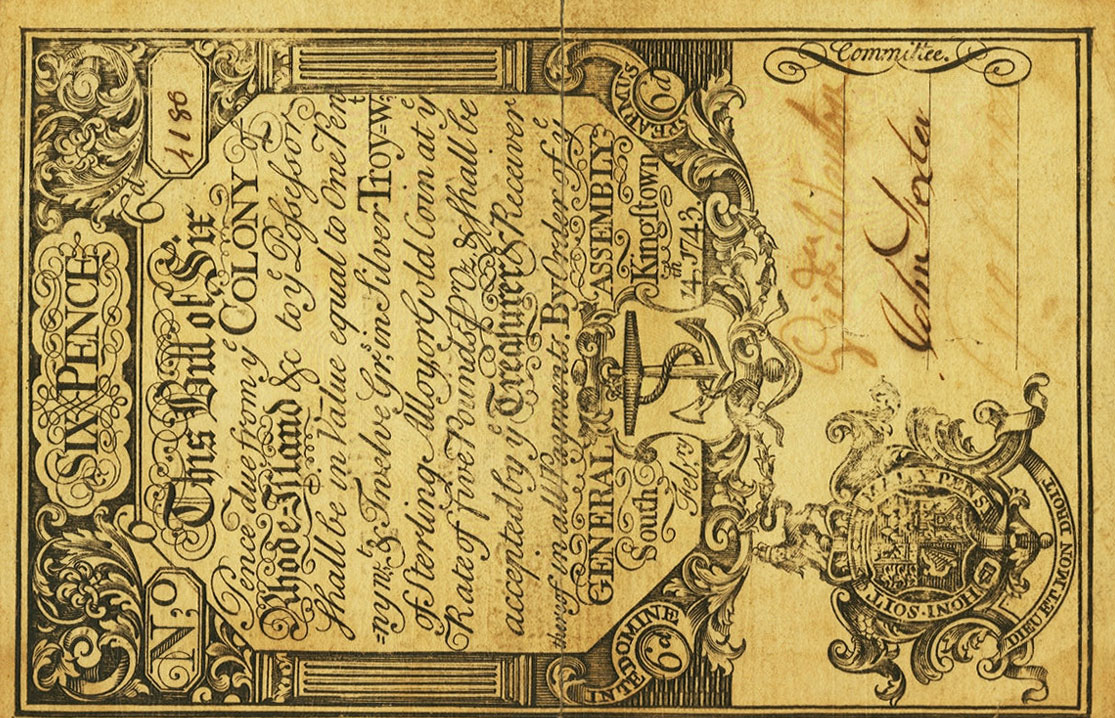 SIX PENCE
N;o 4186
6d
This Bill of Six
Pence due from ye COLONY of
Rhode-Island &c to ye Possessor
shall be in Value equal to One Pen
=nywt & Twelve Grs, in Silver Troy=Wt
of Sterling Alloy or Gold Coin at ye
Rate of five Pounds pr oz & shall be
accepted by ye Treasurer & Receiver
thereof in all Payments. By Order of ye
GENERAL ASSEMBLY
South Kingstown
Feb,ry 14th 1743
INTE DOMINE
6d
SPERAMUS
6d
Committee.
John Potter
HONI·SOIT
Y PENS
DIEU ET MON DROIT